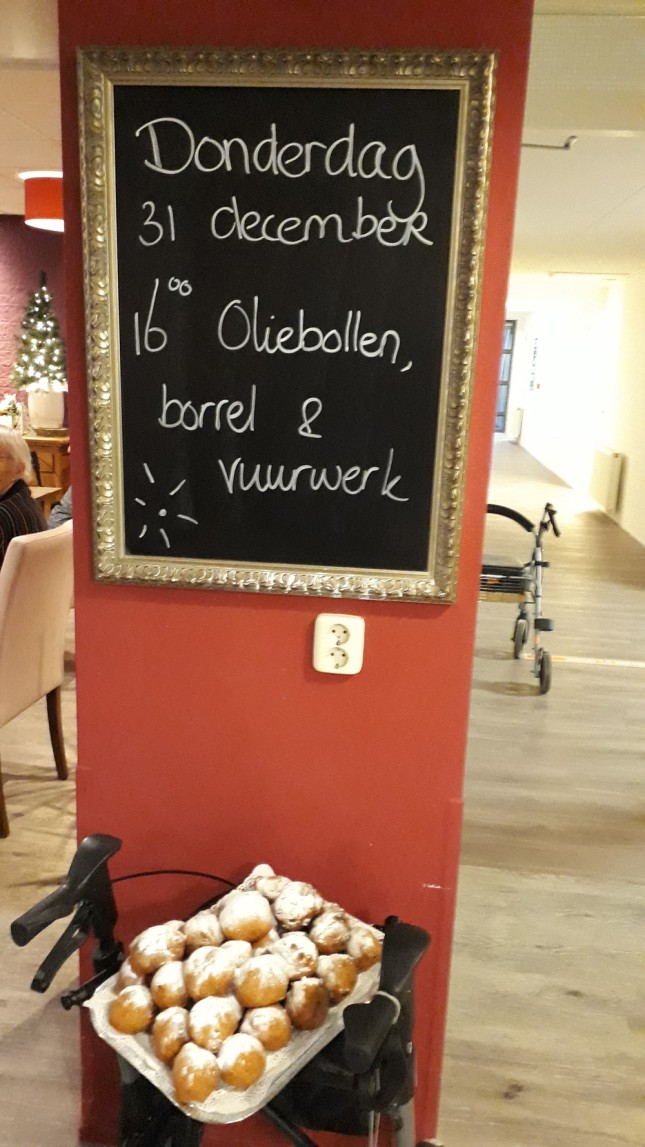 Donderdag
31 december
16⁰⁰ Oliebollen,
borrel &
vuurwerk